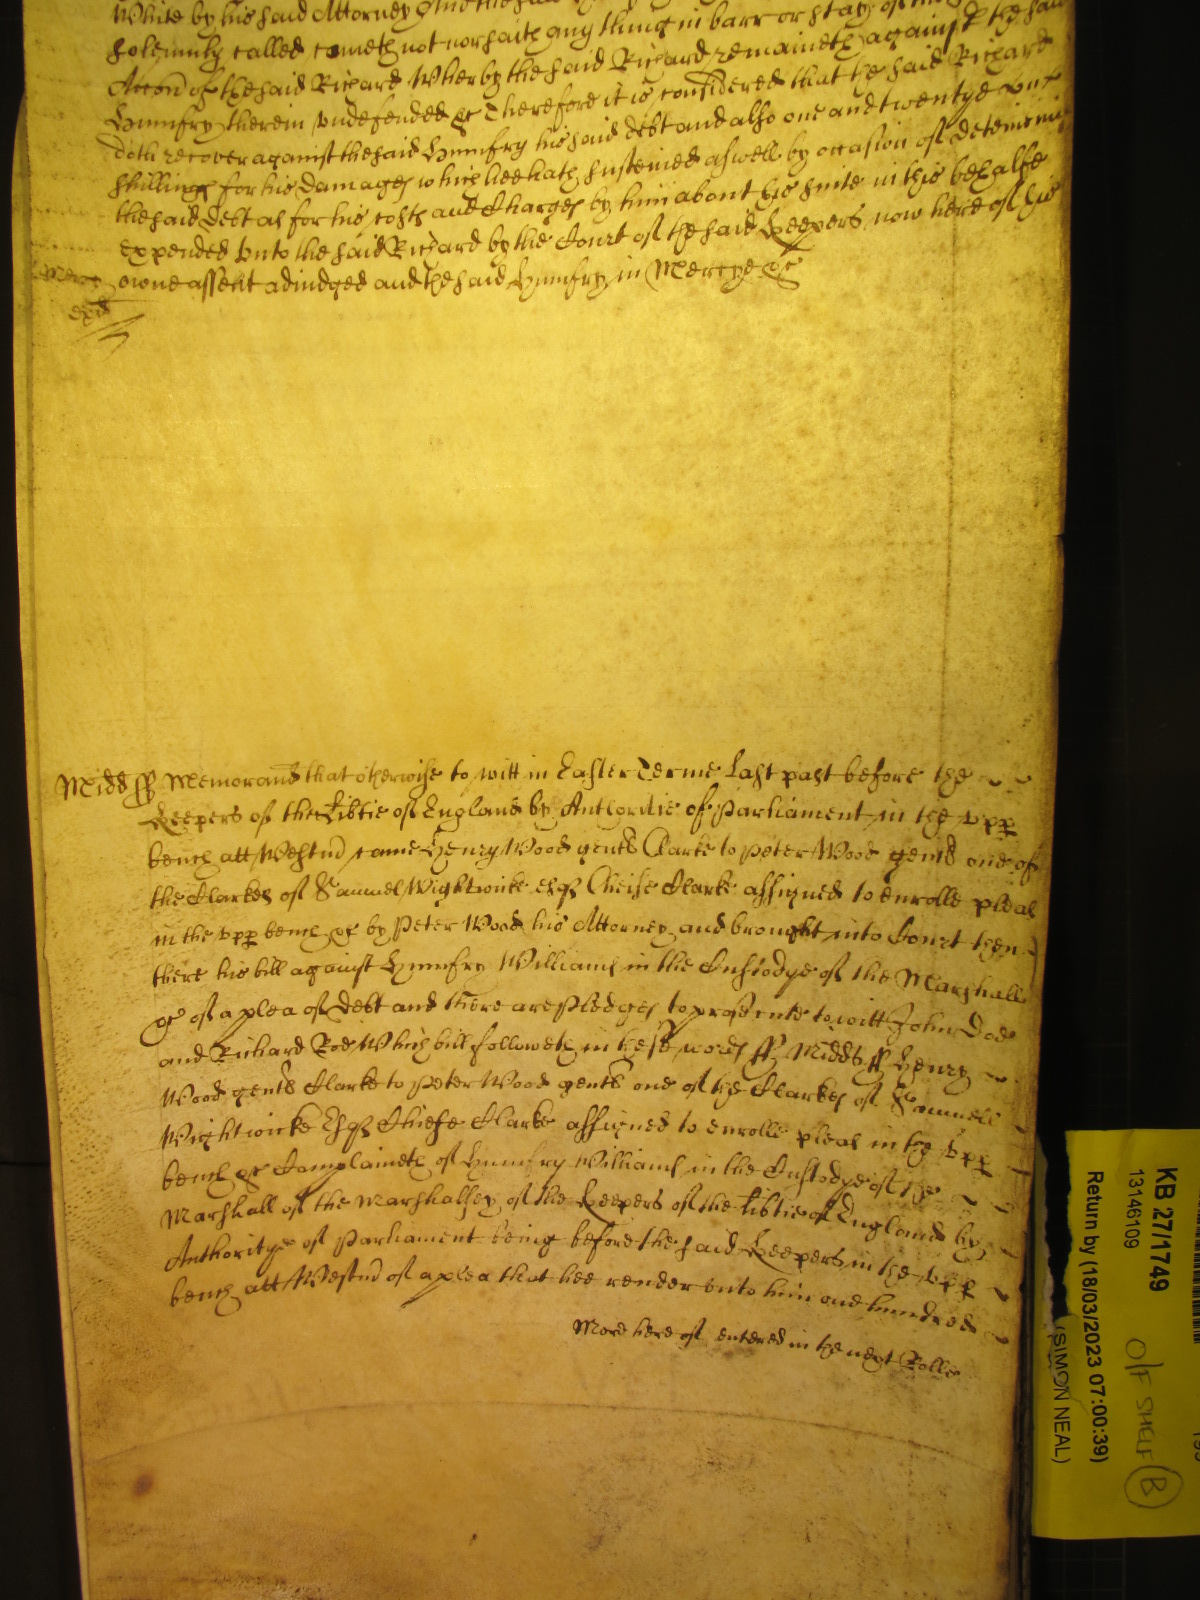 White by his said Attorney And the said
solemnly called cometh not nor saith any thing in barr or stay of the
Accon of the said Richard Wherby the said Richard remaineth against the said
Humfry therein undefended &c Therefore it is considered that the said Richard
doth recover against the said Humfry his said debt and also one and twentye
shillings for his Damages which hee hath susteined aswell by occasion of deteining
the said debt as for his costs and Charges by him about his suite in this behalfe
expended unto the said Richard by the Court of the said Keepers now here of his
owne assent adiudged and the said Humfry in Mercye &c
Midds ss Memorand that otherwise to witt in Easter Terme Last past before the
Keepers of the Libtie of England by Authoritie of Parliament in the upp
bench att Westm came Henry Wood gent Clarke to Peter Wood gent one of
the Clarkes of Samuel Wightwicke esq Cheife Clarke assigned to enrolle pleas
in the upp bench &c by Peter Wood his Attorney and brought into Court then
there his bill against Humfry Williams in the Custodye of the Marshall
&c of a plea of debt and there are pledges to prosecute to witt John Doe
and Richard Roe Which bill followeth in these words ss Midds ss Henry
Wood gent Clarke to Peter Wood gent one of the Clarkes of Samuell
Wightwicke Esq Chiefe Clarke assigned to enrolle pleas in the upp
bench &c Complaineth of Humfry Williams in the Custodye of the
Marshall of the Marshalsey of the Keepers of the Libtie of England by
Authoritye of Parliament being before the said Keepers in the upp
bench att Westm of a plea that hee render unto him one hundred
More here of entered in the next Rolle
KB 27/1749
13146109
Return by (18/03/2023 07:00:39)
(SIMON NEAL)
O/F SHELF B